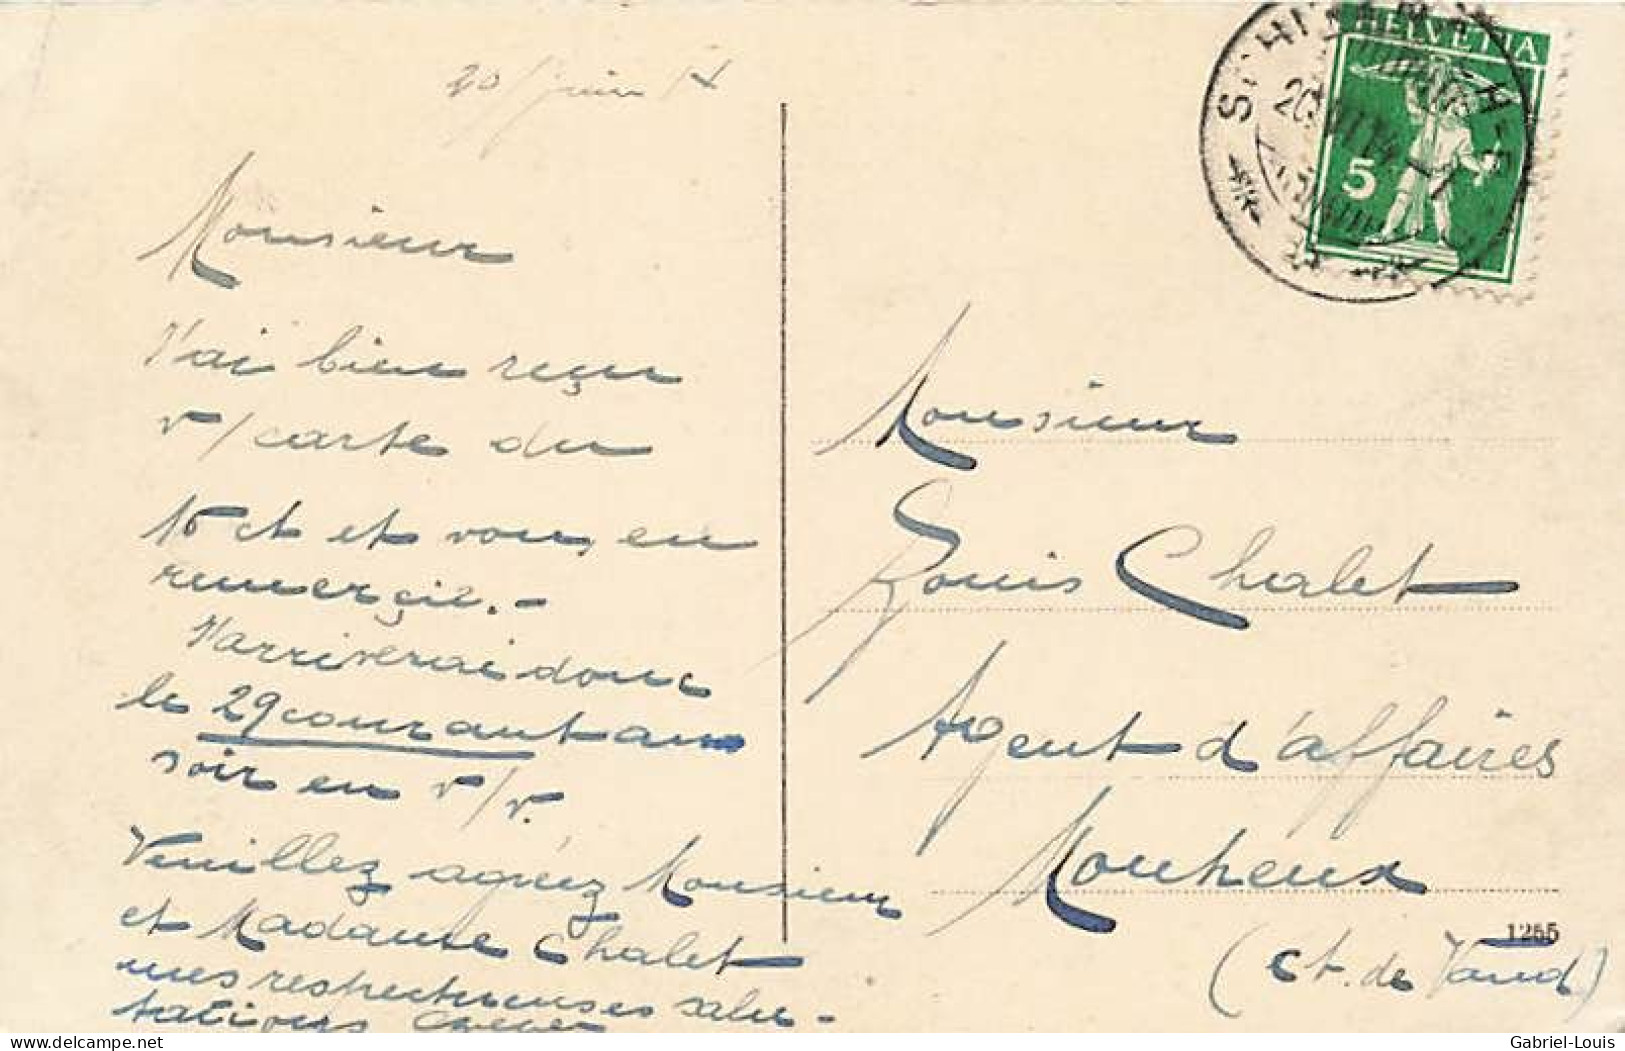 20/juin 14
Monsieur
J'ai bien reçu
v/carte du
16 ct et vous en
remercie.-
J'arriverai donc
le 29 courant au
soir en v/v.
Veuillez agréez Monsieur
et Madame Chalet
mes respectueuses salu-
tations
HELVETIA
5
Monsieur
Louis Chalet
Agent d'affaires
Montreux
1255
(Ct. de Vaud)
delcampe.net
Gabriel-Louis